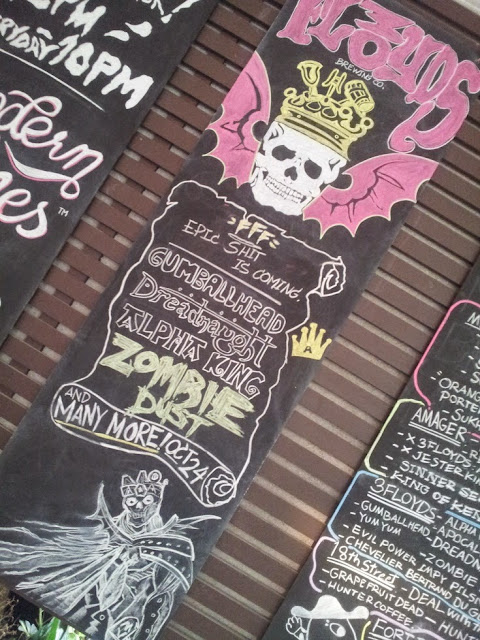 PM
RYDAY 10PM
odern
es™
FLOYDS
BREWING CO.
FFF
EPIC SHIT
IS COMING.
GUMBALLHEAD
Dreadnaught
ALPHA KING
ZOMBIE
DUST
AND
MANY MORE! OCT 24
ORANG
PORTE
SUK
AMAGER - R
- X 3 FLOYDS
- X JESTER KI
- SINNER SE
- KING OF KE
3 FLOYDS - ALPHA
GUMBALLHEAD - APOCAL
YUM YUM - DREADN
- ZOMBIE
- EVIL POWER IMPY. PILSN
- CHEVELIER BERTRAND DUG
18th Street - DEAL WITH
- GRAPEFRUIT DEAD - HUNT
- HUNTER COFFEE
FORT